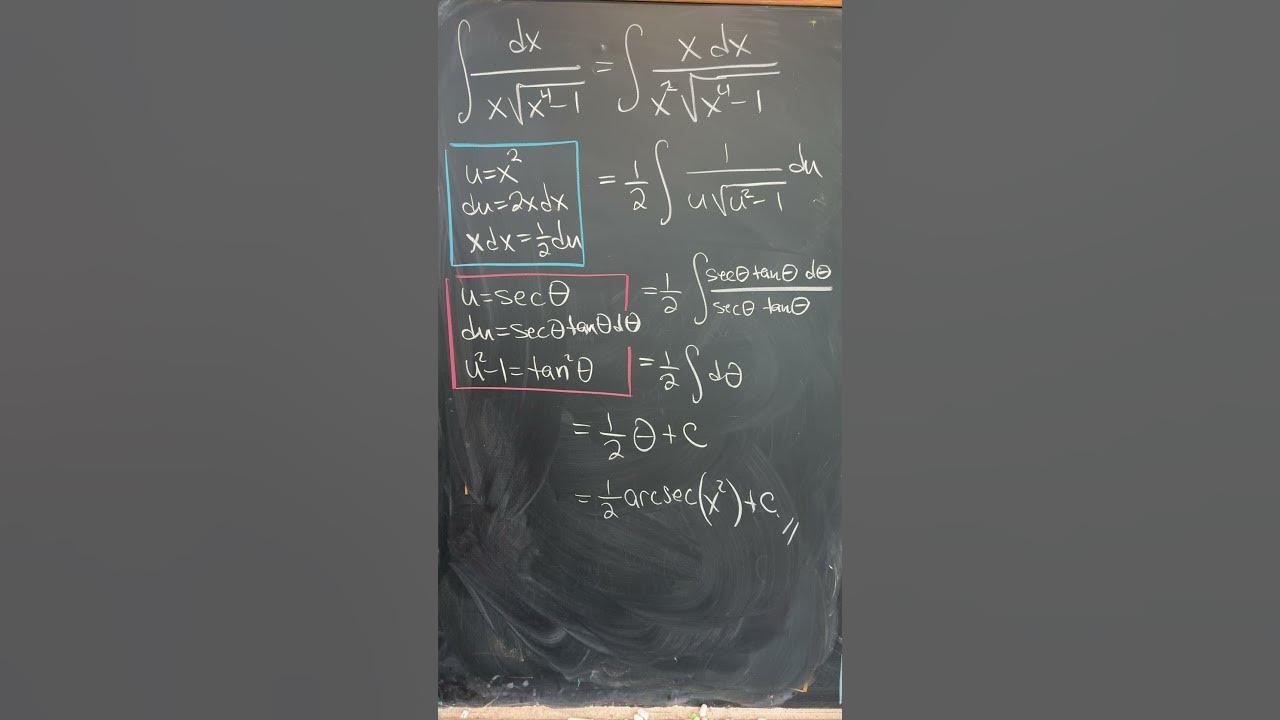 ∫ dx / (x√(x⁴-1)) = ∫ x dx / (x²√(x⁴-1))
u=x²
du=2xdx
xdx=½du
= ½ ∫ 1 / (u√(u²-1)) du
u=secθ
du=secθtanθdθ
u²-1=tan²θ
= ½ ∫ secθtanθ dθ / (secθ tanθ)
= ½ ∫ dθ
= ½ θ+c
= ½ arcsec(x²)+c.//